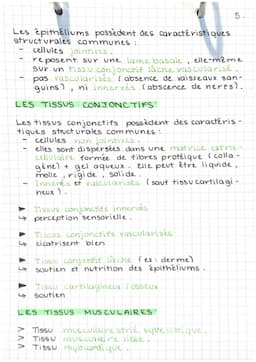 5.
Les épithéliums possèdent des caractéristiques
structurales communes :
- cellules jointives.
- reposent sur une lame basale, elle-même
sur un tissu conjonctif lâche vascularisé.
- pas vascularisés (absence de vaisseaux san-
guins), ni innervés (absence de nerfs).
LES TISSUS CONJONCTIFS
Les tissus conjonctifs possèdent des caractéris-
tiques structurales communes :
- cellules non jointives.
- elles sont dispersées dans une matrice extra-
cellulaire formée de fibres protéique (colla-
gène) + gel aqueux. elle peut être liquide,
molle, rigide, solide.
- Innervés et vascularisés (sauf tissu cartilagi-
neux).
► Tissus conjonctifs innervés
↳ perception sensorielle.
► Tissus conjonctifs vascularisés
↳ cicatrisent bien
► Tissu conjonctif lâche (ex : derme)
↳ soutien et nutrition des épithéliums.
► Tissu cartilagineux / osseux
↳ soutien
LES TISSUS MUSCULAIRES
> Tissu musculaire strié squelettique.
> Tissu musculaire lisse.
> Tissu myocardique.